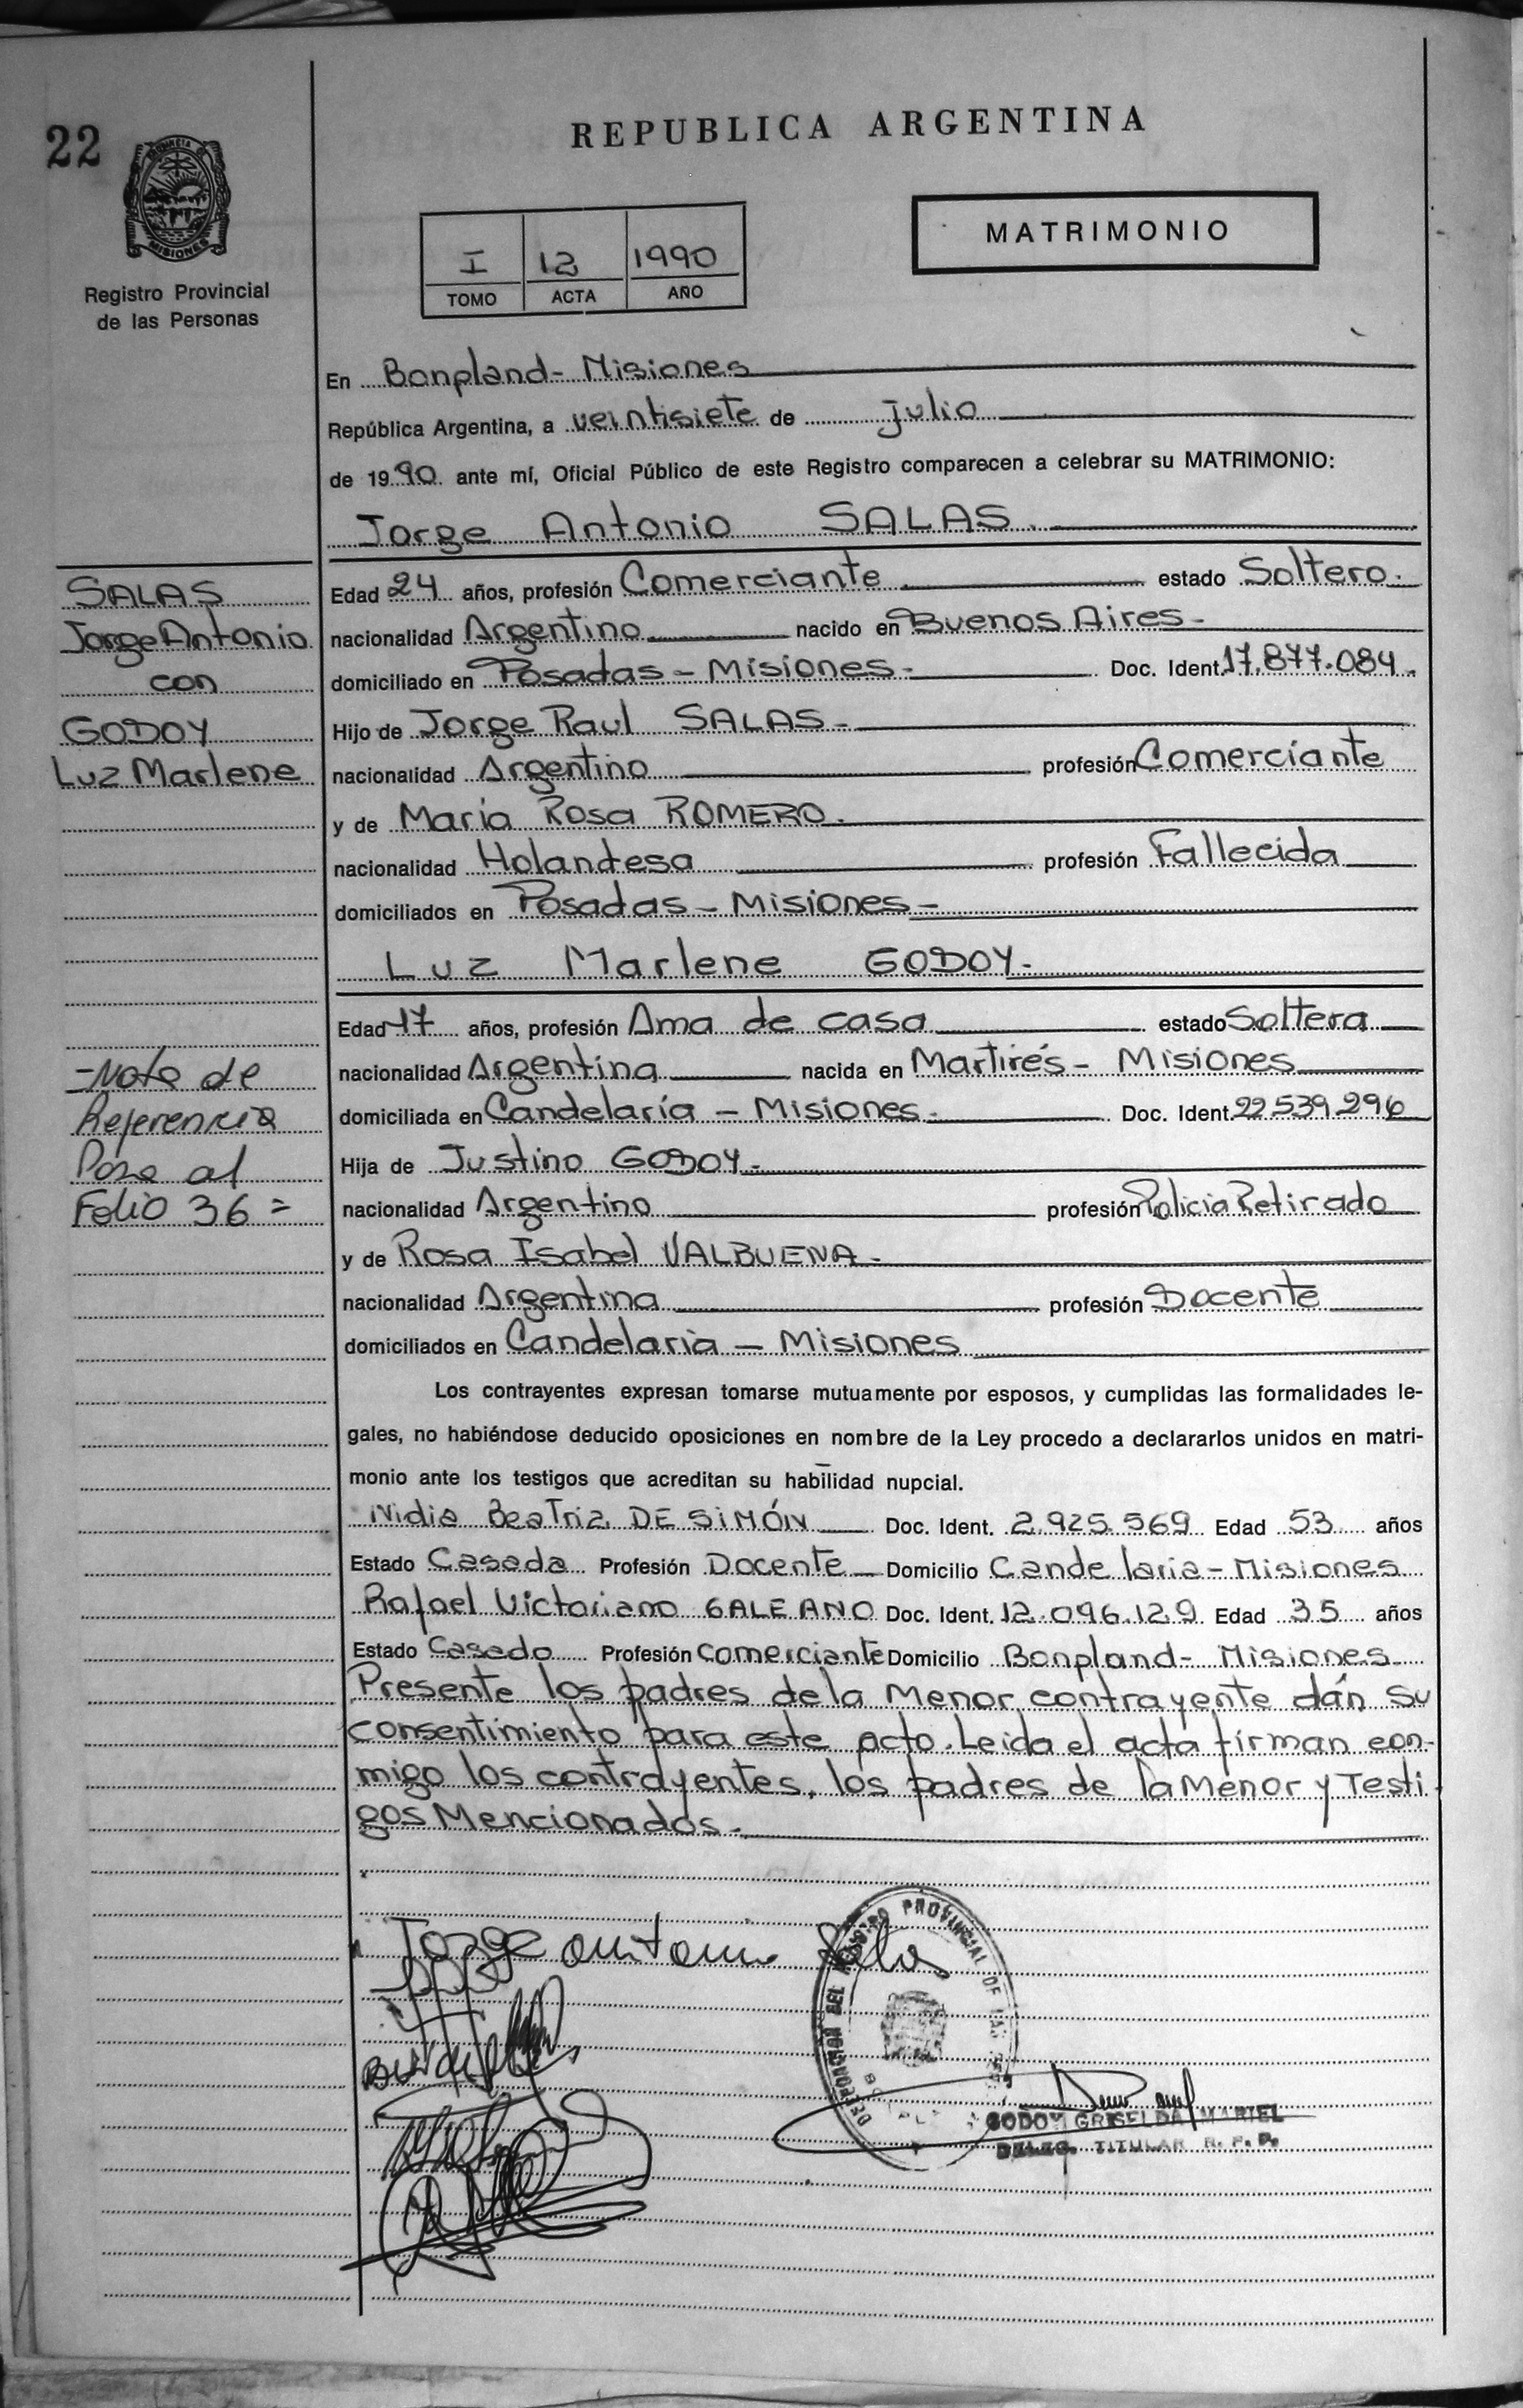 22
REPUBLICA ARGENTINA
MISIONES
Registro Provincial
de las Personas
I 13 1990
TOMO ACTA AÑO
MATRIMONIO
En Bonpland - Misiones
República Argentina, a veintisiete de julio
de 1990 ante mí, Oficial Público de este Registro comparecen a celebrar su MATRIMONIO:
Jorge Antonio SALAS.
SALAS
Jorge Antonio
con
GODOY
Luz Marlene
Edad 24 años, profesión Comerciante estado Soltero.
nacionalidad Argentino nacido en Buenos Aires -
domiciliado en Posadas - Misiones - Doc. Ident. 17.877.084.
Hijo de Jorge Raul SALAS -
nacionalidad Argentino profesión Comerciante
y de Maria Rosa ROMERO.
nacionalidad Holandesa profesión Fallecida
domiciliados en Posadas - Misiones -
Luz Marlene GODOY -
Edad 17 años, profesión Ama de casa estado Soltera
nacionalidad Argentina nacida en Martires - Misiones
domiciliada en Candelaria - Misiones - Doc. Ident. 22.539.296
Hija de Justino GODOY -
nacionalidad Argentino profesión Policia Retirado
y de Rosa Isabel VALBUENA -
nacionalidad Argentina profesión Docente
domiciliados en Candelaria - Misiones
- Nota de
Referencia
Pasa al
Folio 36 =
Los contrayentes expresan tomarse mutuamente por esposos, y cumplidas las formalidades le-
gales, no habiéndose deducido oposiciones en nombre de la Ley procedo a declararlos unidos en matri-
monio ante los testigos que acreditan su habilidad nupcial.
Nidia Beatriz DE SIMÓN Doc. Ident. 2.925.569 Edad 53 años
Estado Casada Profesión Docente Domicilio Candelaria - Misiones
Rafael Victoriano GALEANO Doc. Ident. 12.096.129 Edad 35 años
Estado Casado Profesión Comerciante Domicilio Bonpland - Misiones
Presente los padres de la Menor contrayente dán su
consentimiento para este acto. Leida el acta firman con-
migo los contrayentes, los padres de la Menor y Testi-
gos Mencionados -
Jorge antonio Salas
REGISTRO PROVINCIAL DE LAS
GODOY GRISELDA MARIEL
DELEG. TITULAR R. P. P.